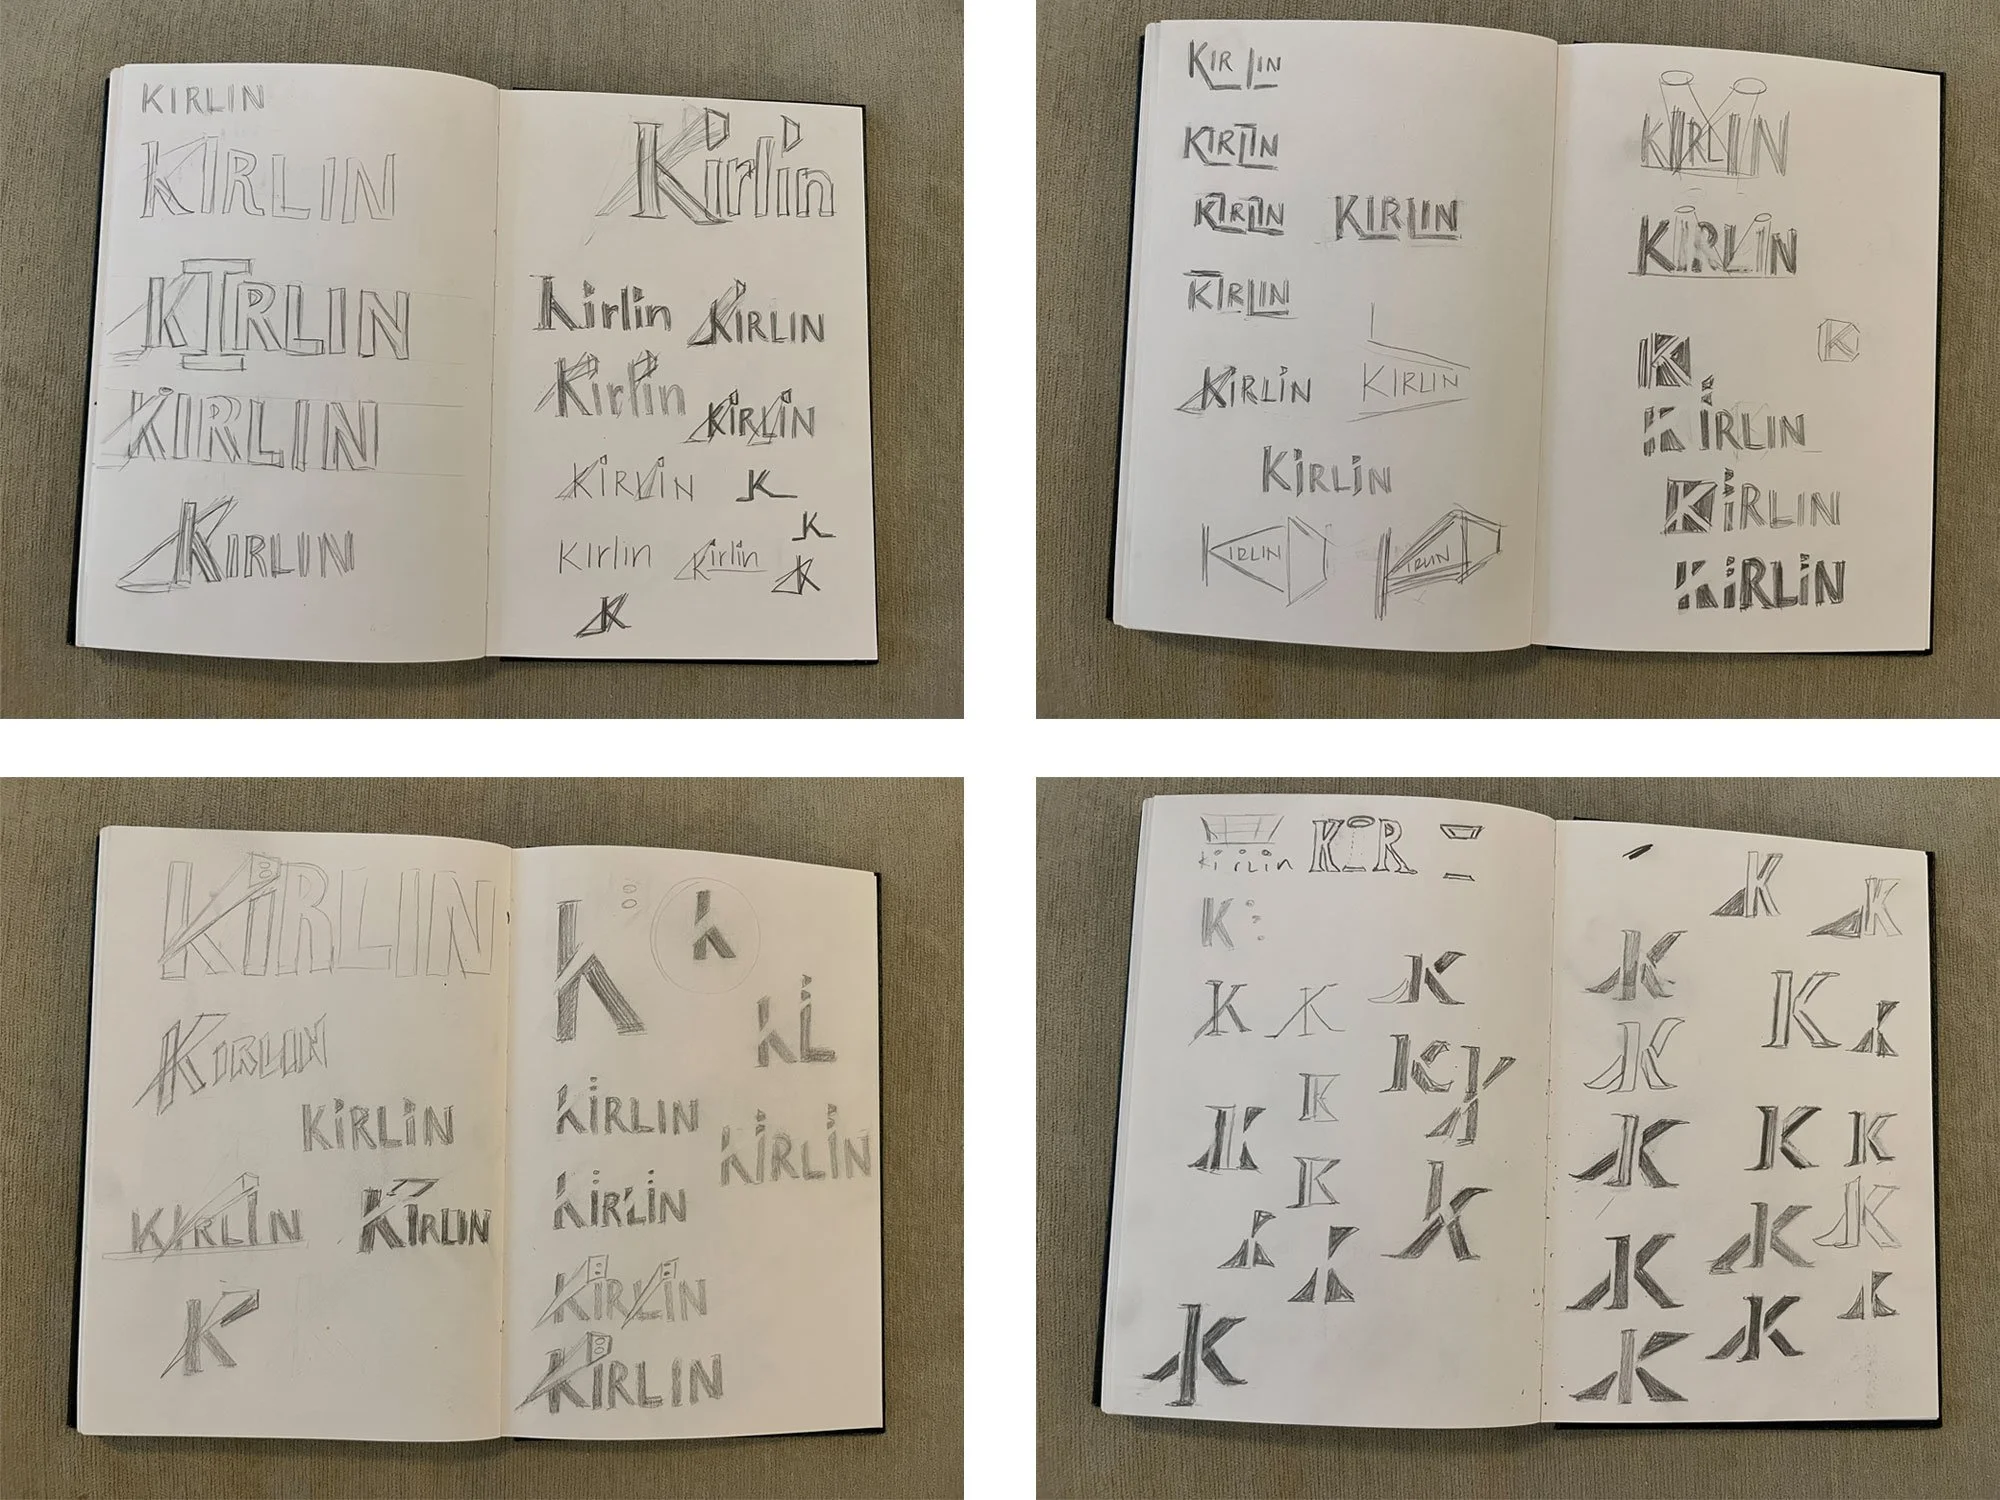 KIRLIN
KIRLIN
KIRLIN
KIRLIN
KIRLIN
Kirlin
Kirlin
KiRLIN
Kirlin
KiRLiN
KiRLiN
K
K
Kirlin
Kirlin
K
K
KIRLIN
KIRLIN
KIRLIN
KIRLIN
KIRLIN
KiRLiN
KIRLIN
KiRLiN
KIRLIN
KIRLIN
KIRLIN
KIRLIN
K
K
KiRLIN
KiRLIN
KiRLiN
KiRLIN
KIRLIN
KiRLiN
KiRLiN
KIRLIN
K
K
K
Ki
KiRLIN
KiRLiN
KiRLiN
KiRLiN
KiRLIN
kirlin
KIR
K
K
K
K
K
K
K
K
K
K
K
K
K
K
K
K
K
K
K
K
K
K
K
K
K
K
K
K
K
K